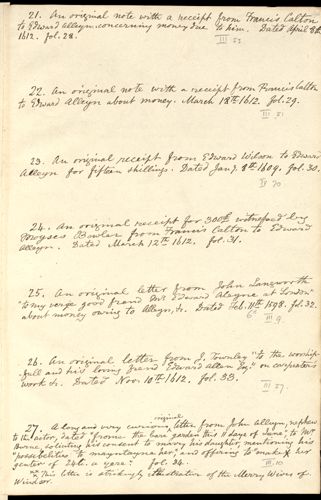 21. An original note with a receipt from Francis Calton
to Edward Alleyn concerning money due to him. Dated April 8th
1612. fol. 28.
22. An original note with a receipt from Francis Calton
to Edward Alleyn about money. March 18th 1612. fol. 29.
III 51
23. An original receipt from Edward Wilson to Edward
Alleyn for fifteen shillings. Dated Jany. 8th 1609. fol. 30.
24. An original receipt for 300£ witnessed by
Bowlar from Francis Calton to Edward
Alleyn. Dated March 12th 1612. fol. 31.
25. An original letter from John Langworth
"to my verye good frend Mr Edward Aleyne at London"
about money owing to Alleyn, &c. Dated Feb. 11th 1598. fol. 32.
III 9
26. An original letter from J. Townley "to the worship-
full and his loving frend Edward Allen Esq." on carpenters
work &c. Dated Nov. 10th 1612. fol. 33.
III 57.
27. A long and very curious, original letter from John Alleyn, nephew
to the actor, dated "frome the bare garden this 11 daye of June", to Mr
Burne, soliciting his consent to marry his daughter, mentioning his
"possibilities to mayntayne her", and offering to make her
gentor of 24li. a yere. fol. 34.
III 10.
This letter is strikingly illustrative of the Merry Wives of
Windsor.